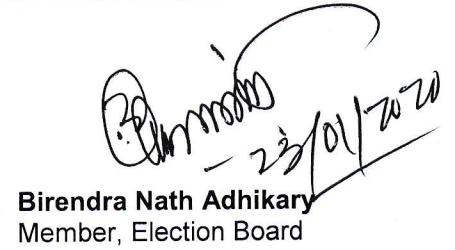 23/01/2020
Birendra Nath Adhikary
Member, Election Board